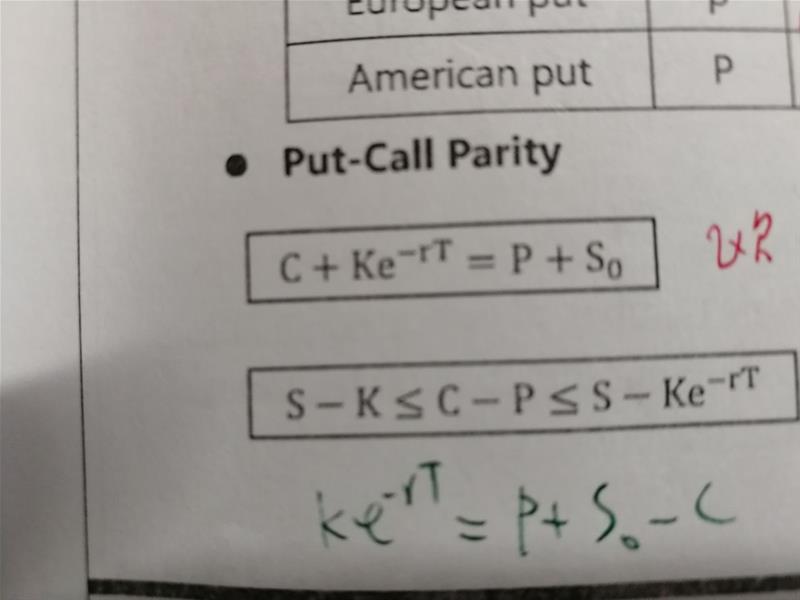 European put p
American put P
• Put-Call Parity
C + Ke⁻ʳᵀ = P + S₀
S − K ≤ C − P ≤ S − Ke⁻ʳᵀ
ke⁻ʳᵀ = P + S₀ − C